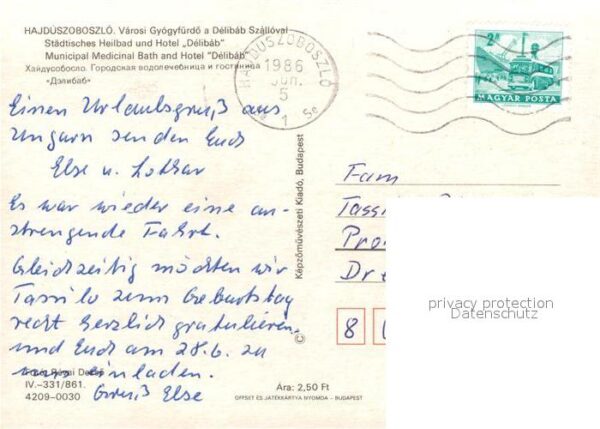 HAJDÚSZOBOSZLÓ. Városi Gyógyfürdő a Délibáb Szállóval
Städtisches Heilbad und Hotel „Délibáb"
Municipal Medicinal Bath and Hotel "Délibáb"
Хайдусобосло. Городская водолечебница и гостиница
«Дэлибаб»
HAJDÚSZOBOSZLÓ
1986
JÚN.
5
1
2 Ft
MAGYAR POSTA
Einen Urlaubsgruß aus
Ungarn senden Euch
Else u. Lothar
Es war wieder eine an-
strengende Fahrt.
Gleichzeitig möchten wir
Tassilo zum Geburtstag
recht herzlich gratulieren
und Euch am 28.6. zu
uns einladen.
Gruß Else
Dezső
IV.—331/861.
4209—0030
Képzőművészeti Kiadó, Budapest
©
Fam
Tass
Dr
8
privacy protection
Datenschutz
Ára: 2,50 Ft
OFFSET ÉS JÁTÉKKÁRTYA NYOMDA - BUDAPEST